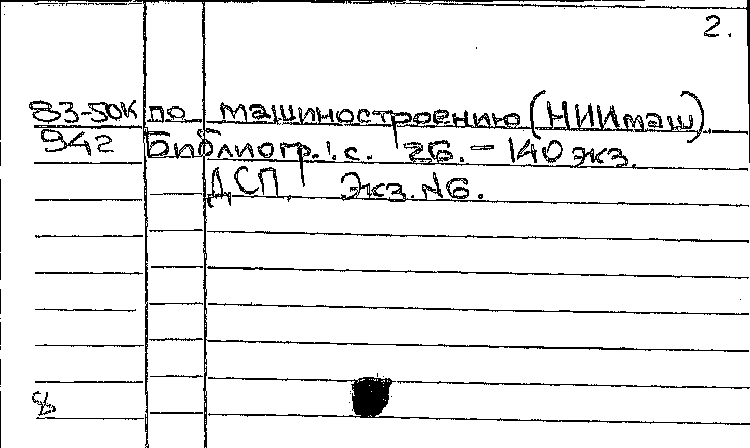 2.
83-50К по машиностроению (НИИмаш).
942 Библиогр.: с. 26. – 140 экз.
ДСП. Экз. N6.
8